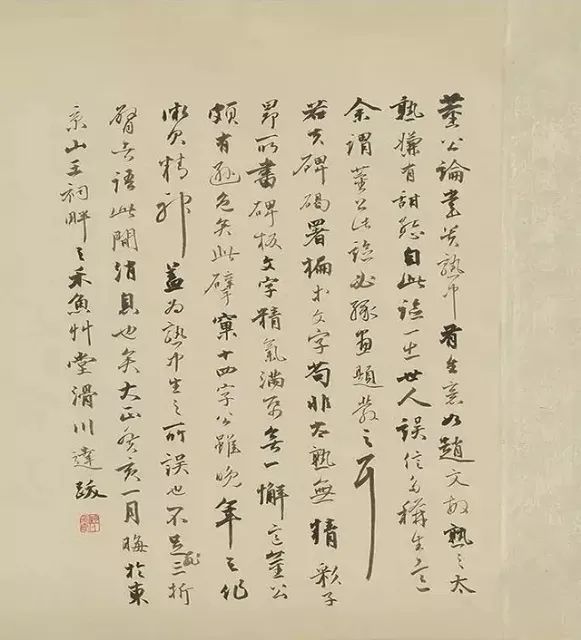 董公論書貴熟中有生意如趙文敏熟之太
熟嫌有甜態自此論一出世人誤信多稱生意
余謂董公此論必緣画題發之耳
若夫碑碣署榜大文字苟非太熟無精彩子
昂所書碑板文字精氣滿無一懈意董公
頗有遜色矣此擘窠十四字公雖晚年之作
微欠精神蓋為熟中生之所誤也不足三折
語此間消息也矣大正癸亥一月晦於東
京山王祠畔之禾魚艸堂滑川達跋